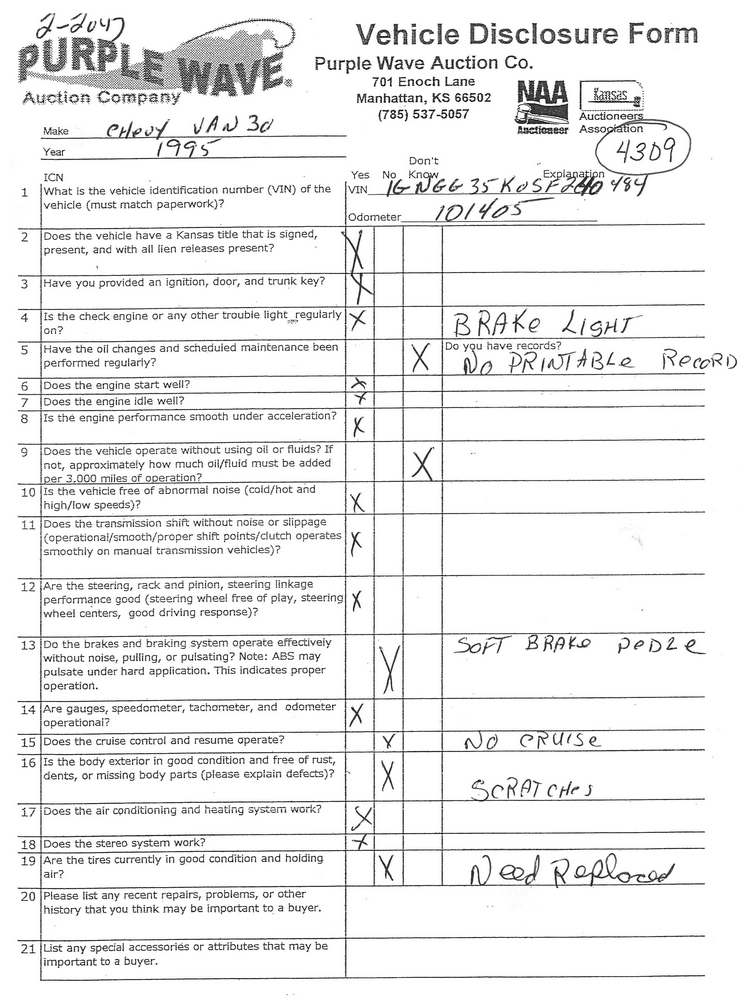 2-2047
PURPLE WAVE
Auction Company
Vehicle Disclosure Form
Purple Wave Auction Co.
701 Enoch Lane
Manhattan, KS 66502
(785) 537-5057
NAA
Auctioneer
Kansas
Auctioneers
Association
4309
Make CHEVY VAN 30
Year 1995
ICN
Yes No Don't Know Explanation
1 What is the vehicle identification number (VIN) of the
vehicle (must match paperwork)?
VIN
Odometer 101405
2 Does the vehicle have a Kansas title that is signed,
present, and with all lien releases present? X
3 Have you provided an ignition, door, and trunk key? X
4 Is the check engine or any other trouble light regularly
on? X BRAKE LIGHT
5 Have the oil changes and scheduled maintenance been
performed regularly? X Do you have records?
NO PRINTABLE RECORD
6 Does the engine start well? X
7 Does the engine idle well? X
8 Is the engine performance smooth under acceleration? X
9 Does the vehicle operate without using oil or fluids? If
not, approximately how much oil/fluid must be added
per 3,000 miles of operation? X
10 Is the vehicle free of abnormal noise (cold/hot and
high/low speeds)? X
11 Does the transmission shift without noise or slippage
(operational/smooth/proper shift points/clutch operates
smoothly on manual transmission vehicles)? X
12 Are the steering, rack and pinion, steering linkage
performance good (steering wheel free of play, steering
wheel centers, good driving response)? X
13 Do the brakes and braking system operate effectively
without noise, pulling, or pulsating? Note: ABS may
pulsate under hard application. This indicates proper
operation. X SOFT BRAKE PEDLE
14 Are gauges, speedometer, tachometer, and odometer
operational? X
15 Does the cruise control and resume operate? X NO CRUISE
16 Is the body exterior in good condition and free of rust,
dents, or missing body parts (please explain defects)? X SCRATCHES
17 Does the air conditioning and heating system work? X
18 Does the stereo system work? X
19 Are the tires currently in good condition and holding
air? X Need Replaced
20 Please list any recent repairs, problems, or other
history that you think may be important to a buyer.
21 List any special accessories or attributes that may be
important to a buyer.